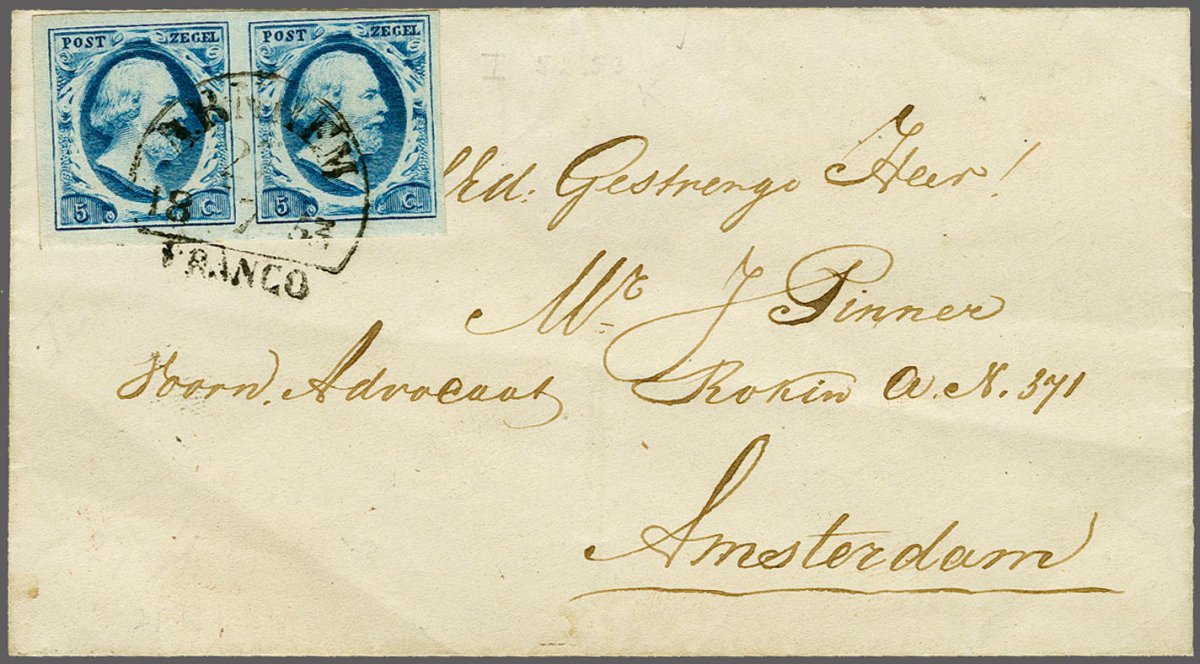 POST ZEGEL POST ZEGEL
5 C. 5 C.
ARNHEM
18 53
FRANCO
Gestrenge Heer!
Mr. J Pinner
Voorn. Advocaat Rokin A. N. 371
Amsterdam